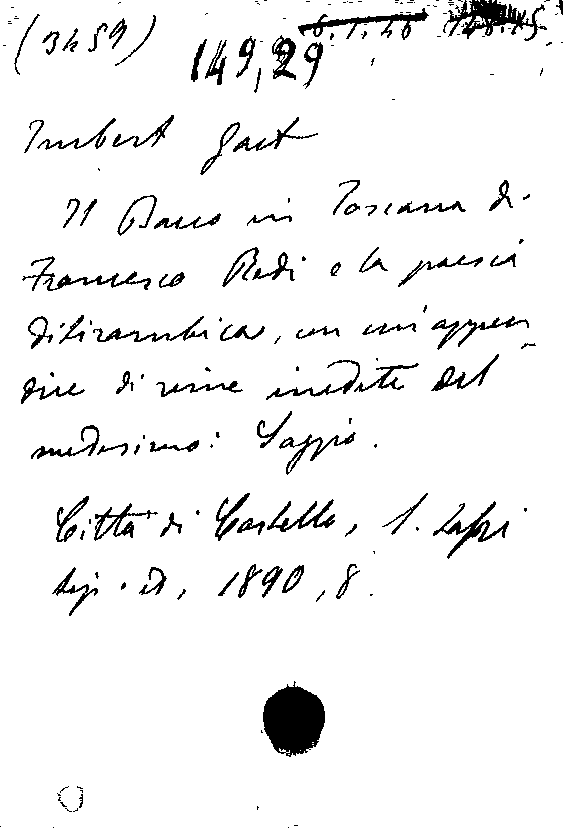 (3459)
149,29
Imbert Gaet
Il Bacco in Toscana di
Francesco Redi e la poesia
ditirambica, con un'appen-
dice di rime inedite del
medesimo: Saggio.
Città di Castello, S. Lapi
tip. ed, 1890, 8.